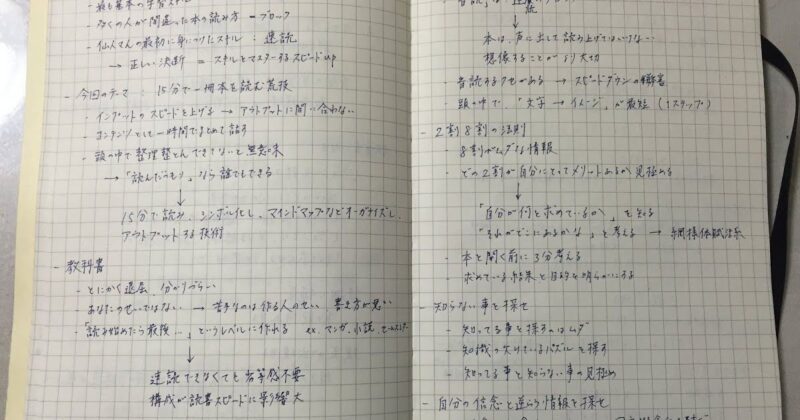 - 最も基本の学習スキル
- 多くの人が間違った本の読み方 = ブロック
- 仙人さんの最初に身につけたスキル : 速読
→ 正しい決断 = スキルをマスターするスピードup
- 今回のテーマ : 15分で一冊本を読む荒技
- インプットのスピードを上げる → アウトプットに間に合わない
- コンテンツとして一時間でまとめて話す
- 頭の中で整理整とんできてないと無意味
→ 「読んだつもり」なら誰でもできる
↓
15分で読み、シンボル化し、マインドマップなどオーガナイズし、
アウトプットする技術
- 教科書
- とにかく退屈、分かりづらい
- あなたのせいではない → 苦手なのは作る人のせい 書き方が悪い
- 「読み始めたら最後…」というレベルに作れる ex. マンガ、小説、セールスレター
↓
速読できなくても劣等感不要
構成が読書スピードに影響大
本は、声に出して読み上げてはいけない
想像することがより大切
- 音読するクセがある → スピードダウンの弊害
- 頭の中で、「文字 → イメージ」が最短 (1ステップ)
- 2割8割の法則
- 8割がムダな情報
- どの2割が自分にとってメリットあるか見極める
↓
「自分が何を求めているか」を知る
「それがどこにあるかな」と考える → 網様体賦活系
- 本を開く前に3分考える
- 求めている結果と目的を明らかにする
- 知らない事を探せ
- 知ってる事を探すのはムダ
- 知識の欠けているパズルを探す
- 知ってる事と知らない事の見極め
- 自分の信念と逆らう情報を探せ